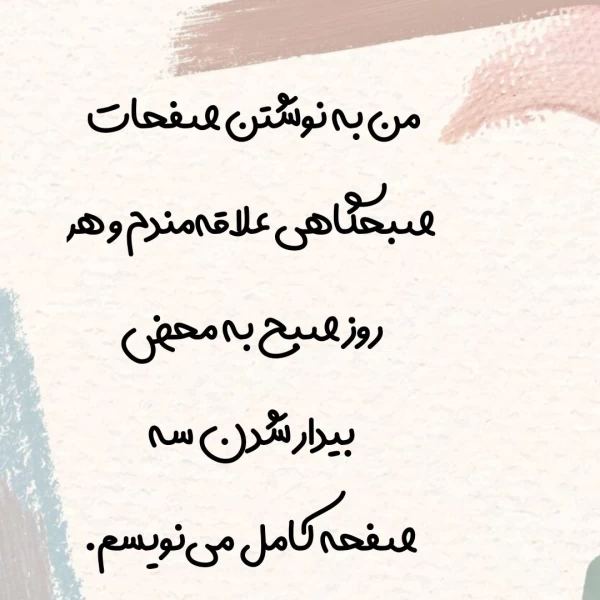 من به نوشتن صفحات
صبحگاهی علاقه‌مندم و هر
روز صبح به محض
بیدار شدن سه
صفحه کامل می‌نویسم.